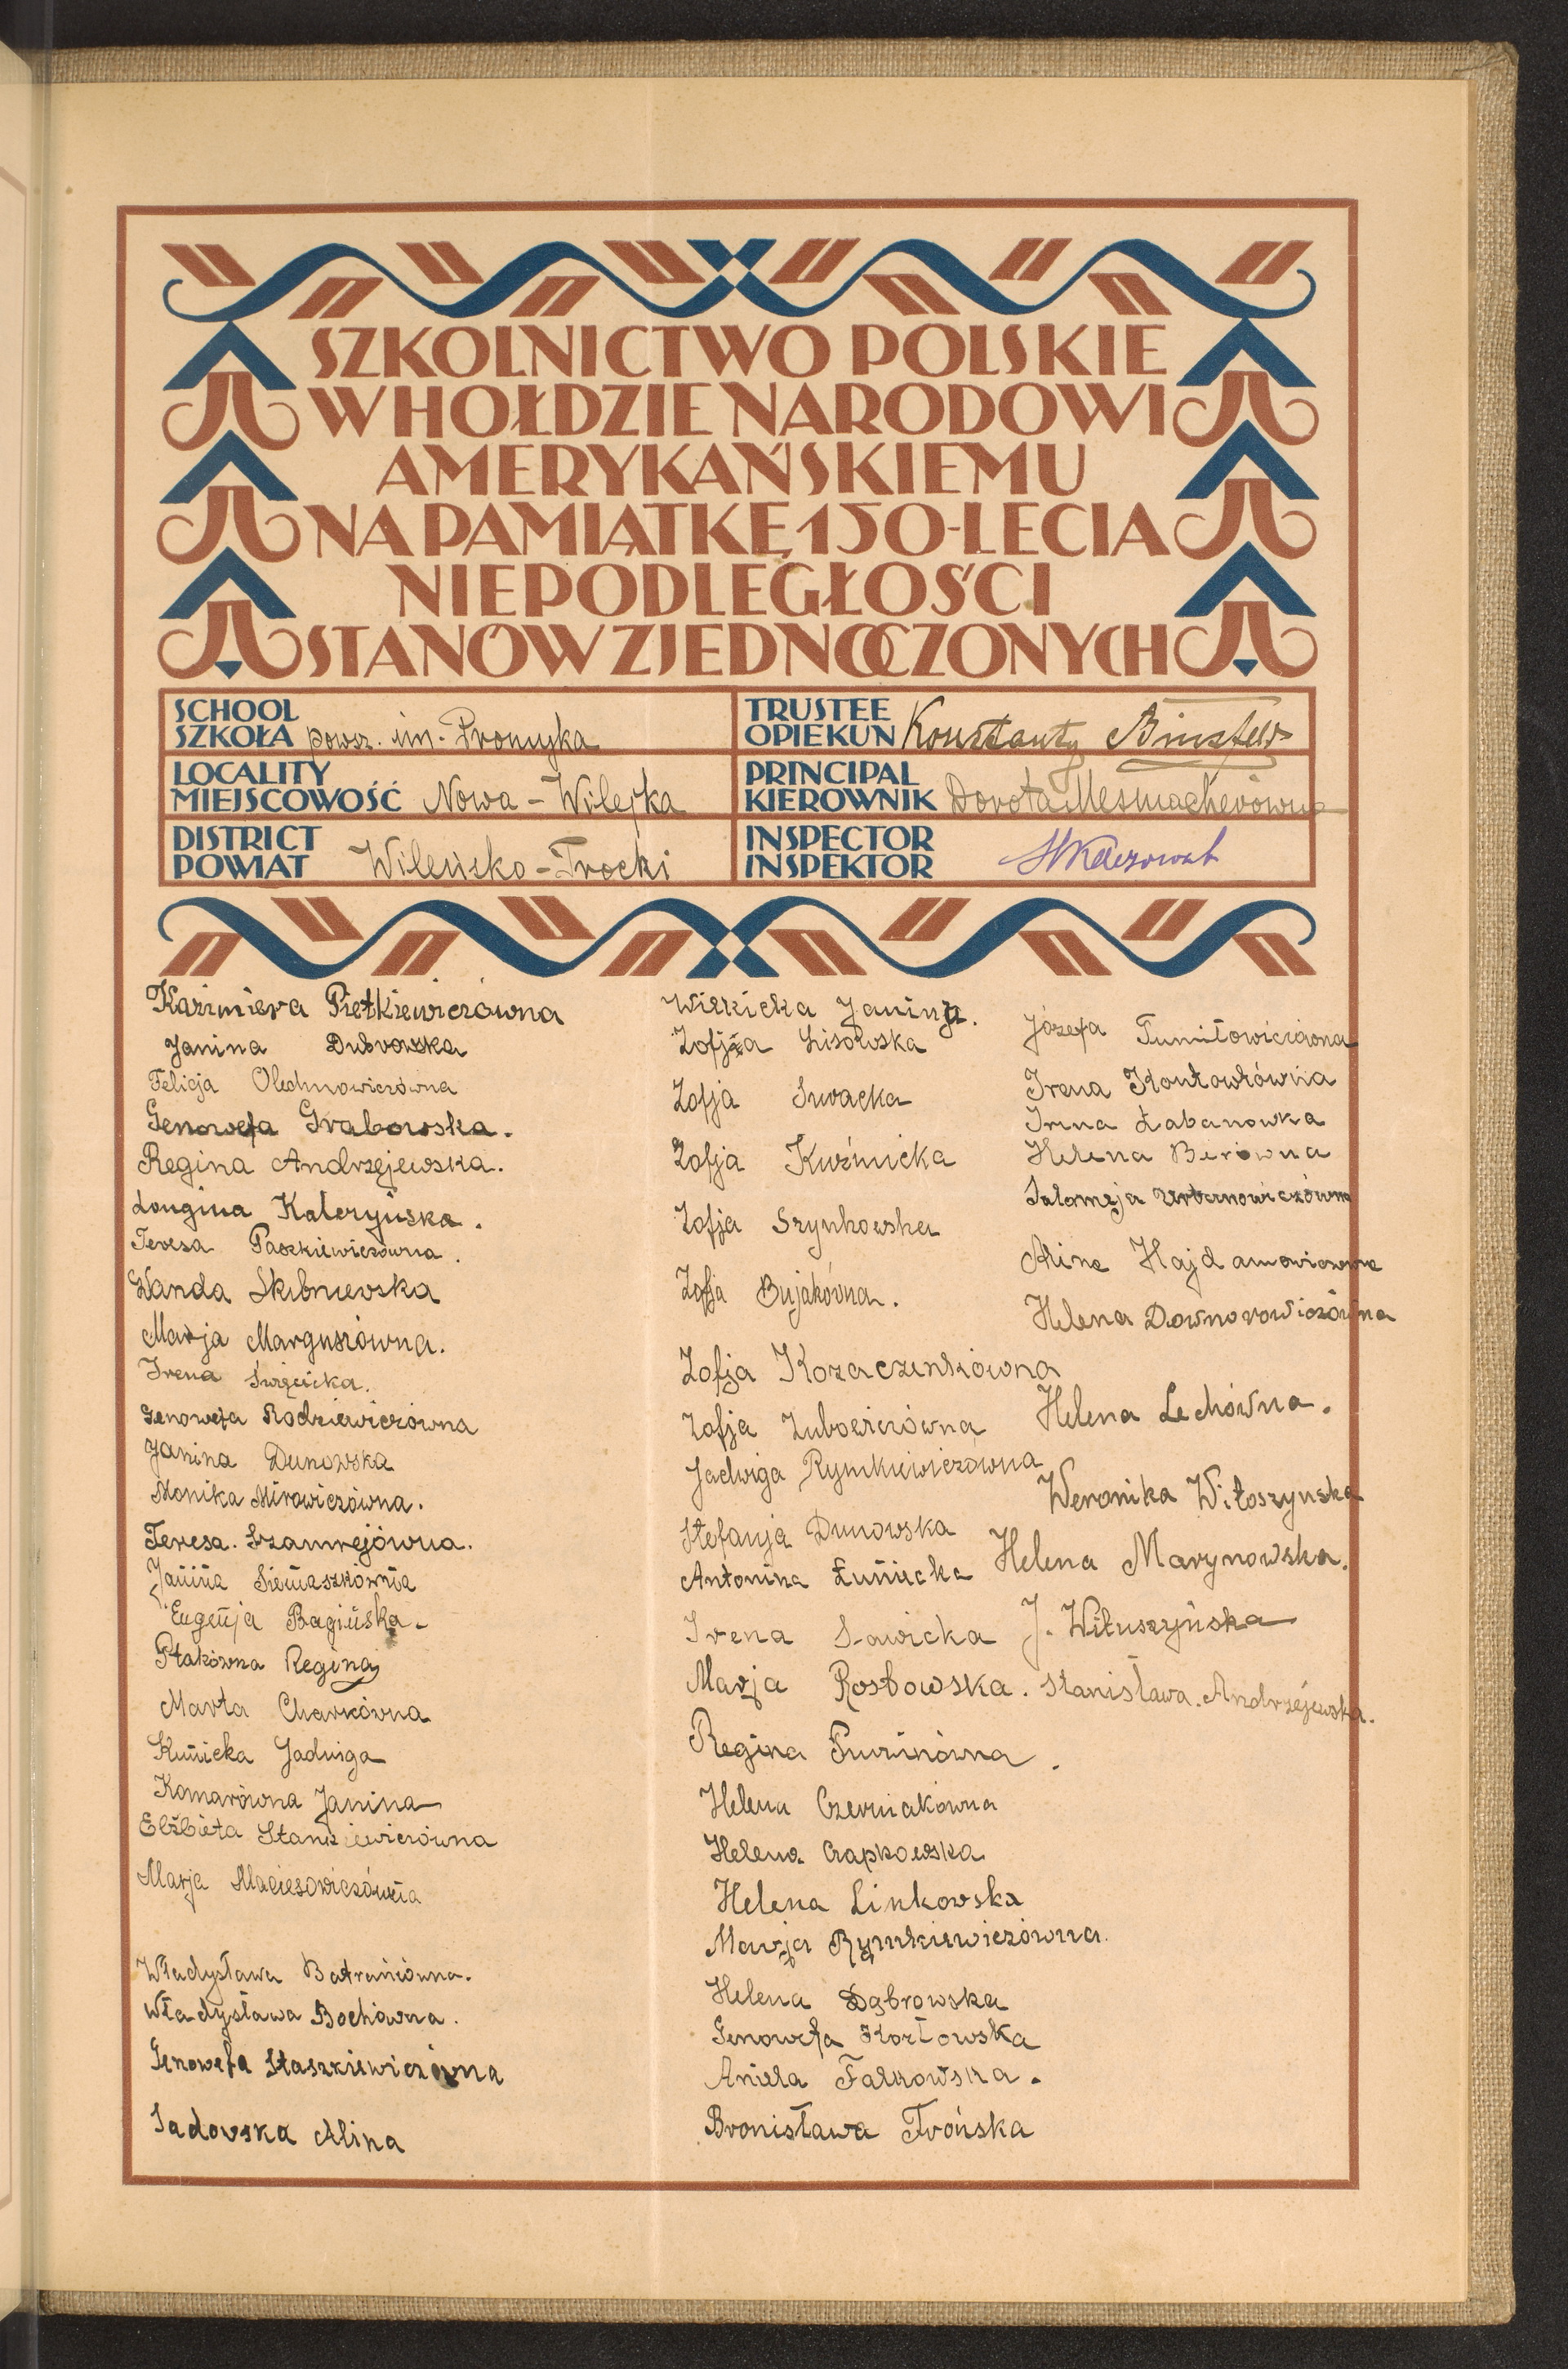 SZKOLNICTWO POLSKIE
W HOŁDZIE NARODOWI
AMERYKAŃSKIEMU
NA PAMIĄTKĘ 150-LECIA
NIEPODLEGŁOŚCI
STANÓW ZJEDNOCZONYCH
SCHOOL
SZKOŁA powsz. im. Promyka
LOCALITY
MIEJSCOWOŚĆ Nowa - Wilejka
DISTRICT
POWIAT Wileńsko - Trocki
TRUSTEE
OPIEKUN Konstanty Binsfeld
PRINCIPAL
KIEROWNIK Dorota Mesmacherówna
INSPECTOR
INSPEKTOR
Kazimiera Pietkiewiczówna
Janina Dubrowska
Felicja Olechnowiczówna
Genowefa Grabowska.
Regina Andrzejewska.
Longina Kateryńska.
Teresa Paszkiewiczówna.
Wanda Skibniewska
Marja Marguszówna.
Irena Święcicka.
Genowefa Rodziewiczówna
Janina Dunowska
Monika Mirowiczówna.
Teresa. Szamrejówna.
Janina Siemaszkówna
Eugenja Bagińska.
Ptakówna Regina
Marta Charkówna
Kunicka Jadwiga
Komarówna Janina
Elżbieta Stankiewiczówna
Marja Maciesowiczówna
Władysława Batraniówna.
Władysława Bochówna.
Genowefa Staszkiewiczówna
Sadowska Alina
Wilkicka Janina.
Zofja Lisowska
Zofja Suracka
Zofja Kuźmicka
Zofja Szynkowska
Zofja Bujakówna.
Zofja Kozaczenkówna
Zofja Zubowiczówna
Jadwiga Rymkiewiczówna
Stefanja Dunowska
Antonina Łuniecka
Irena Sawicka
Marja Rostowska.
Regina Puzinówna.
Helena Czerniakówna
Helena Czapkowska
Helena Linkowska
Marja Rymkiewiczówna.
Helena Dąbrowska
Genowefa Kozłowska
Aniela Falkowska.
Bronisława Trońska
Józefa Tumiłowiczówna
Irena Kontowtówna
Irena Łabanowka
Helena Berówna
Salomeja Urbanowiczówna
Alina Hajdamowiczówna
Helena Downorowiczówna
Helena Lechówna.
Weronika Witoszynska
Helena Marynowska.
J. Wituszyńska
Stanisława. Andrzejewska.